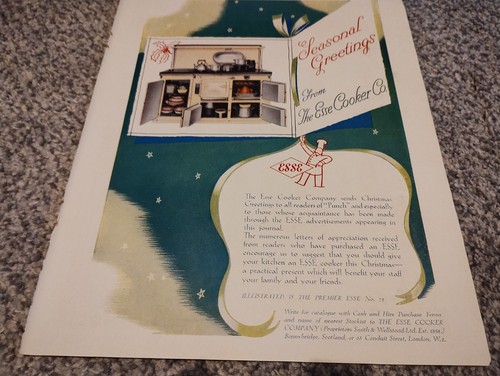 Seasonal
Greetings
From
The Esse Cooker Co.
ESSE
The Esse Cooker Company sends Christmas
Greetings to all readers of "Punch" and especially
to those whose acquaintance has been made
through the ESSE advertisements appearing in
this journal.
The numerous letters of appreciation received
from readers who have purchased an ESSE,
encourage us to suggest that you should give
your kitchen an ESSE cooker this Christmas—
a practical present which will benefit your staff
your family and your friends.
ILLUSTRATED IS THE PREMIER ESSE No. 78
Write for catalogue with Cash and Hire Purchase Terms
and name of nearest Stockist to THE ESSE COOKER
COMPANY (Proprietors, Smith & Wellstood Ltd. Est. 1854.)
Bonnybridge, Scotland, or 63 Conduit Street, London, W.1.